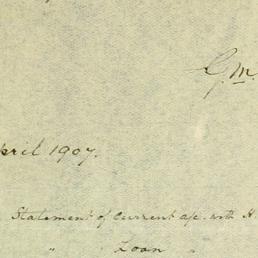 G. M.
pril 1907.
Statement of Current a/c. with H
" Loan "